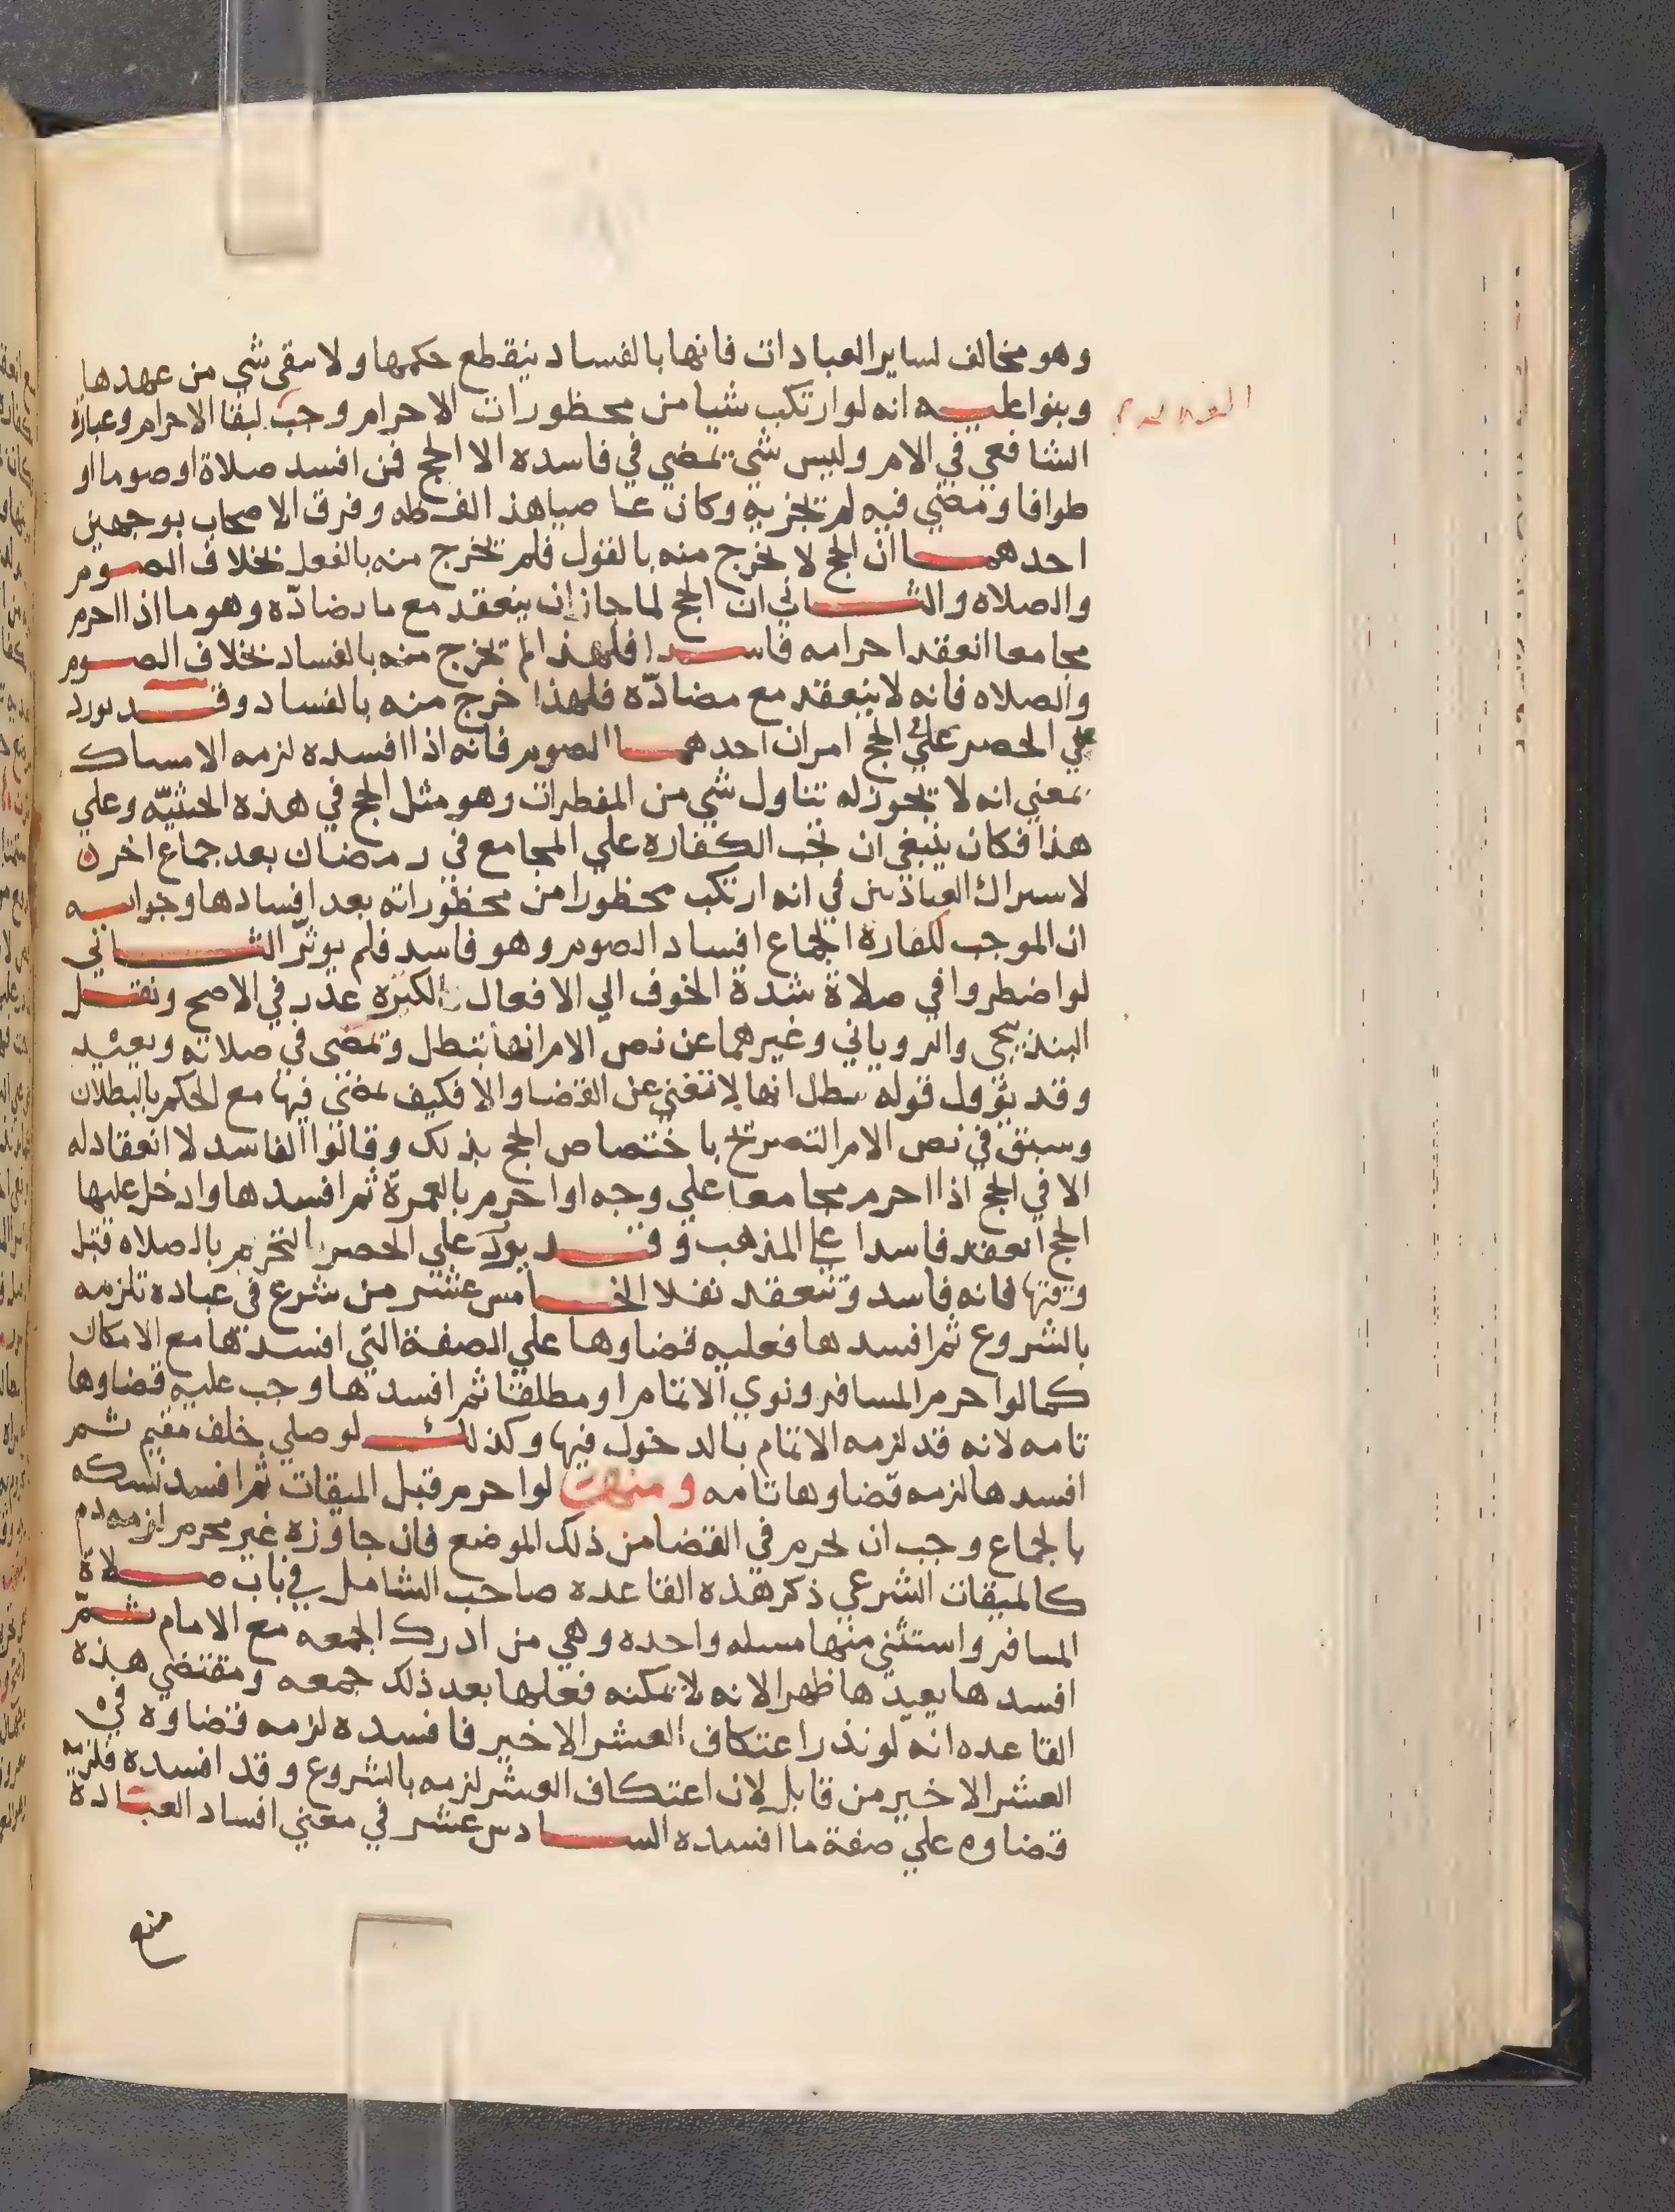 وهو مخالف لساير العبادات فانها بالفساد ينقطع حكمها ولا يبقى شي من عهدها
وبنوا عليه انه لو ارتكب شيا من محظورات الاحرام وجبت لبقا الاحرام وعبارة
الشافعي في الامر وليس شي يمضي في فاسده الا الحج فمن افسد صلاة او صوما او
طوافا ومضي فيه لم يجزيه وكان عاصيا هذا لفظه وفرق الاصحاب بوجهين
احدهما ان الحج لا يخرج منه بالقول فلم يخرج منه بالفعل بخلاف الصوم
والصلاه والثاني ان الحج لما جاز ان ينعقد مع ما يضادّه وهو ما اذا احرم
مجامعا انعقد احرامه فاسدا فلهذا لم يخرج منه بالفساد بخلاف الصوم
والصلاه فانه لا ينعقد مع مضادّه فلهذا خرج منه بالفساد وقد يورد
علي الحصر علي الحج امران احدهما الصوم فانه اذا افسده لزمه الامساك
بمعني انه لا يجوز له تناول شي من المفطرات وهو مثل الحج في هذه الحيثيّه وعلي
هذا فكان ينبغي ان تجب الكفاره علي المجامع في رمضان بعد جماع اخر ن
لاسراك العبادتين في انه ارتكب محظورا من محظوراته بعد افسادها وجوابه
ان الموجب لكفارة الجماع افساد الصوم وهو فاسد فلم يوثّر الثاني
لو اضطروا في صلاة شدة الخوف الي الافعال الكثيرة عذر في الاصح ونقل
البندنيجي والروياني وغيرهما عن نص الامر انها تبطل ويمضى في صلاته ويعيد
وقد يؤول قوله تبطل انها لا تغني عن القضا والا فكيف يمضي فيها مع الحكم بالبطلان
وسبق في نص الامر التصريح باختصاص الحج بذلك وقالوا الفاسد لا انعقاد له
الا في الحج اذا احرم مجامعا علي وجه او احرم بالعمرة ثم افسدها وادخل عليها
الحج انعقد فاسدا علي المذهب وقد يورد علي الحصر التحرم بالصلاه قبل
وقتها فانه فاسد وتنعقد نفلا الخامس عشر من شرع في عباده تلزمه
بالشروع ثم افسدها فعليه قضاوها علي الصفة التي افسدها مع الامكان
كما لو احرم المسافر ونوي الاتمام او مطلقا ثم افسدها وجب عليه قضاوها
تامه لانه قد لزمه الاتمام بالدخول فيها وكذلك لو صلي خلف مقيم ثم
افسدها لزمه قضاوها تامه ومنها لو احرم قبل الميقات ثم افسد نسكه
بالجماع وجب ان يحرم في القضا من ذلك الموضع فان جاوزه غير محرم لزمه دم
كالميقات الشرعي ذكر هذه القاعده صاحب الشامل في باب صلاة
المسافر واستثني منها مسله واحده وهي من ادرك الجمعه مع الامام ثمّ
افسدها يعيدها ظهرا لانه لا يمكنه فعلها بعد ذلك جمعه ومقتضي هذه
القاعده انه لو نذر اعتكاف العشر الاخير فافسده لزمه قضاوه في
العشر الاخير من قابل لان اعتكاف العشر لزمه بالشروع وقد افسده فلزمه
قضاوه علي صفة ما افسده السادس عشر في معني افساد العبادة
منع